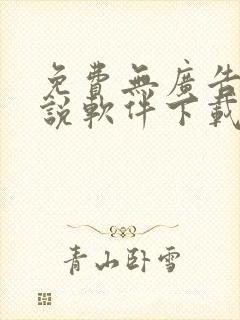 免費無廣告
說軟件下載
青山卧雪